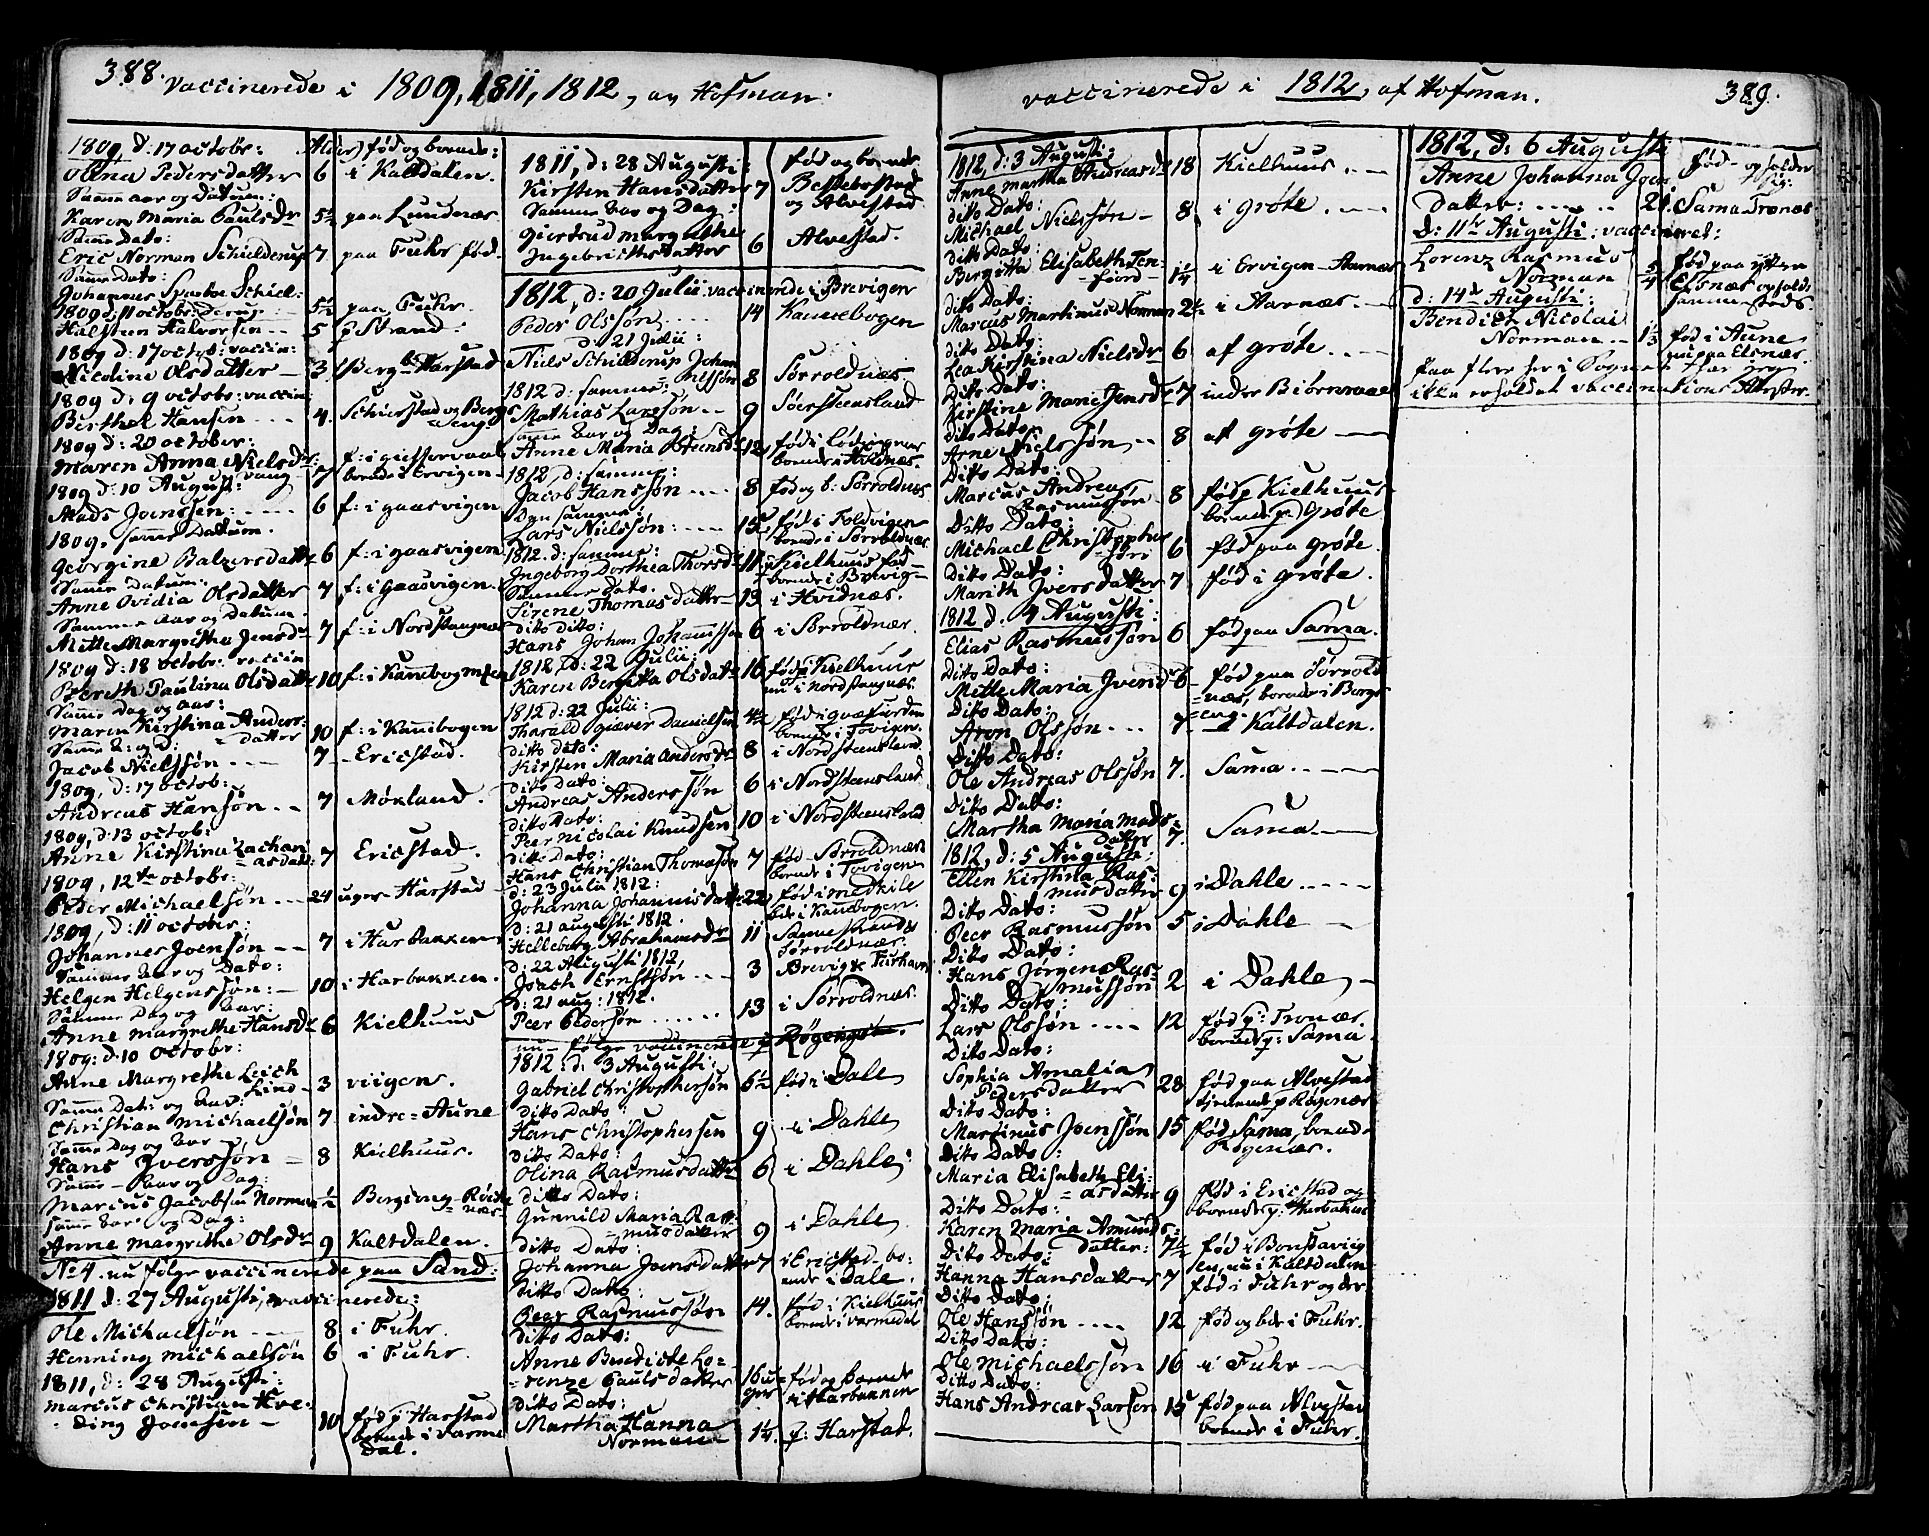 388.
vaccinerede i 1809, 1811, 1812, av Hofman.
1809 d: 17 octobr: Alder fød og boende:
Olina Pedersdatter 6 i Kaltdalen.
Samme aar og Datum:
Karen Maria Paulsdr 5½ paa Lundnæs
Samme Dato:
Eric Norman Schielderup 7 paa Fuhr fød.
Samme Dato:
Johannes Sparboe Schiel-
1809 d: 11 octobr: derup: 5½ paa Fuhr.
Halsten Halvorsen 5 p Strand:
1809 d: 17 octob: vaccin:
Nicoline Olsdatter 3 Berg Harstad
1809 d: 9 octob: vaccin:
Berthel Hansen 4. Schierstad og Bergs-
=eng
1809 d: 20 october:
Maren Anna Nielsdr 7 f: i
vang boende i Ervigen
1809 d: 10 August:
Mads Joensen: 6 f: i gaasvigen
1809, samme Datum.
Georgine Balzersdatter 6 f: i gaasvigen
Samme Datum:
Anne Ovidia Olsdatter 7 f: i gaasvigen.
Samme Aar og Datum.
Mette Margretha Jensdr 7 f: i Nordstangnæs
1809 d: 18 octobr: vaccin
Bereth Paulina Olsdatter 10 f: i Kannebogen
Samme Dag og aar:
Maren Kirstina Anders-
=datter 10 f: i Kannebogen
Jacob Nielssøn 7 Ericstad.
1809, d: 17 octob:
Andreas Hansøn 7 Møkland.
1809, d: 13 octob:
Anne Kirstina Zachari
=asdatr: 7 Ericstad.
1809, 12te octobr:
Peder Michaelsøn 24 uger Harstad
1809, d: 11 october:
Johannes Joensøn 7 i Harbakken
Samme Aar og Dato:
Helgen Helgenssøn: 10 i Harbakken.
Samme Dag og Aar:
Anne margrethe Hansdr 6 Kielhuus
1809: d: 10 octobr:
Anne Margrethe Leich
Lind 3 viigen.
Samme Dat: og Aar:
Christian Michaelsøn 7 indre=Aune
Samme Dag og Aar
Hans Iverssøn 8 Kielhuus.
Samme Aar og Dag:
Marcus Jacobsen Norman ½ Bergseng-Røike
=næs
Samme Aar og Dag:
Anne margrethe Olsdr 9 Kaltdalen.
No 4. nu følge vaccinerede paa Sand:
1811 d: 27 Augusti, vaccinerede:
Ole Michaelsøn 8 i Fuhr.
Henning michaelsøn 6 i Fuhr.
1811, d: 28 Augusti:
Marcus Christian Hve-
ding Joensen 10 fød p Harstad
boende i varme
Dal.
1811, d: 28 Augusti: fød og boende
Kirsten Hansdatter 7 Bessebostad
og Alvestad
Samme Aar og Dag:
Giertrud margrethe
Ingebrichtsdatter 6 Alvestad.
1812, d: 20 Julii vaccinerede i Brevigen
Peder Olssøn 14 Kannebogen
d: 21 Julii:
Niels Schilderup Johan
nessøn 8 Sørroldnæs
1812 d: samme:
Mathias Larssøn 9 Sørsteensland
samme Aar og Dag:
Anne Maria Steensdr 12 fød i lødingnæs
boende i Hvidnæs.
1812, d: samme:
Jacob Hanssøn 8 fød og b: Sørroldnæs
Dyn samme:
Lars Nielssøn: 15 fød i Foldvigen
boende i Sørroldnæs
1812. d: samme:
Ingeborg Dorthea Thorsdr 11 Kielhuus fød
boende i Brevig
Samme Dato.
Sirene Thomasdatter 13 i Hvidnæs.
ditto ditto:
Hans Johan Johannssøn 6 i Sørroldnæs.
1812 d: 22 Julii:
Karen Bergitta Olsdatr 16 fød i Kielhuus
nu i Nordstangnæs.
1812 d: 22 Julii:
Tharald Giæver Danielsen 4½ fød i qvæfiorden
boende i Tovigen
ditto dato:
Kirsten Maria Andersdr 8 i Nordsteensland
ditto Dato:
Andreas Anderssøn 6 i Nordsteensland
ditto Dato:
Peer nicolai Knudsen 10 i Nordsteensland
ditto Dato:
Hans Christian Thomasøn 7 fød Sørroldnæs
boende i Tovigen
d: 23 Julii 1812:
Johanna Johannisdatter 22 fød i medkile
boe i Kannebogen.
d: 21 augusti 1812.
Helleborg Abrahamsdr 11 Sannestrand
Sørroldnæs.
d: 22 Augusti 1812,
Joach Ernstsøn 3 Brevig
d: 21 aug: 1812.
Peer Pedersøn 13 i Sørroldnæs.
nu følge vaccinerede p Røgenæs.
1812. d: 3 Augusti:
Gabriel Christophersøn 6½ fød i Dale
ditto Dato:
Hans Christophersen 9 i Dahle
ditto Dato:
Olina Rasmusdatter 6 i Dahle
ditto Dato:
Gunnild Maria Ras-
=musdatter 9 i Dahle
ditto Dato:
Johanna Joensdatter 7 i Ericstad bo-
ende i Dale.
Ditto Dato:
Peer Rasmussøn 14. fød i Kielhuus
boende i varmedal
ditto Dato:
Anne Bendicte Lo-
=renze Paulsdatter 16 u- fød og boende
ger i Harbakken
ditto Dato:
Martha Hanna
Norman 1¼ f: Harstad.
vaccinerede i 1812, af Hofman.
389.
1812, d: 3 Augusti:
Anne martha Andreasdr 18 Kielhuus
ditto Dato:
Michael Nielssøn 8 i grøte
ditto Dato:
Bergitta Elisabeth Ten-
fiord 1¼ i Ervigen-Aarnæs
ditto Dato:
Marcus Martinus Norman 2½ i Aarnæs
ditto Dato:
Lea Kirstina Nielsdr 6 af grøte
Ditto Dato:
Kirstine Marie Jensdr 7 inder Biørnraae
ditto Dato:
Arne Nielssøn 8 af grøte
Ditto Dato:
Marcus Andreas
Rasmussøn 8 fød p Kielhuus
boende p Grøte
Ditto Dato:
Michael Christopher
søn 6 fød paa grøte.
Ditto Dato:
Marith Iversdatter 7 fød i grøte.
1812 d. 4 Augusti:
Elias Rasmussøn 6 fød paa Sama.
Ditto Dato:
Mette Maria Ivensdr 6 fød paa Sørrold
=næs, boende i Bergs
=eng.
Ditto Dato:
Aron Olssøn 7 i Kaltdalen.
Ditto Dato:
Ole Andreas Olssøn 7. Sama
Ditto Dato:
Martha Maria Mads-
Datter 7. Sama
1812, d: 5 Augusti.
Ellen Kirstina Ras-
musdatter 9 i Dahle
Ditto Dato:
Peer Rasmussøn 5 i Dahle
Ditto Dato:
Hans Jørgen Ras-
mussøn 2 i Dahle
Ditto Dato:
Lars Olssøn 12 fød p: Tronæs.
boende p: Sama.
Ditto Dato:
Sophia Amalia
Pedersdatter 28 fød paa Alvestad
tjenende p Røgenæs
Ditto Dato:
Martinus Joenssøn 15 fød Sama, boende
Røgenæs.
Ditto Dato:
Maria Elisabeth Eli-
=asdatter 9 fød i Ericstad og
boende p: Harbakken
Ditto Dato:
Karen Maria Amunds-
datter: 7½ fød i Bonstaviig
en, nu i Kaltdalen
Ditto Dato:
Hanna Hansdatter 7 fød i Fuhr og der
Ditto Dato:
Ole Hanssøn 12 fød og boe i Fuhr.
Ditto Dato:
Ole michaelssøn 16 i Fuhr
Ditto Dato:
Hans Andreas Larsen 15 fød paa Alvestad
boende i Fuhr.
1812, d: 6 Augusti fød- og holder
sig:
Anne Johanna Joens
Datter: 21. Sama Tronæs
d: 11te Augusti: vaccineret:
Lorenz Rasmus
Norman 5/4 fød paa ytter
Elsnæs og holdr
samme steds
d: 14de Augusti:
Bendich Nicolai
Norman 1½ fød i Aune
nu paa Elsnæs.
Paa flere her i Sognet har jeg
ikke erholdet vaccinations Attester.